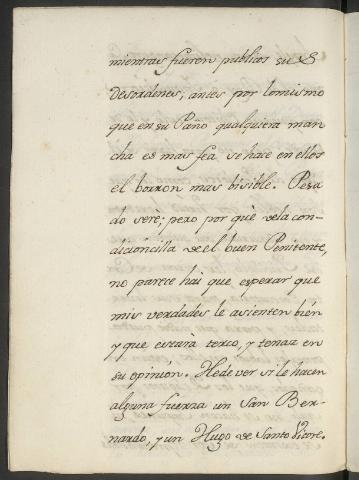 mientras fueron publicos sus
Desordenes; antes por lo mismo
que en su Paño qualquiera man
cha es mas fea se hace en ellos
el borron mas bisible. Pesa
do serè; pero por què dela con-
dicióncilla de el buen Penitente,
no parece hai que esperar que
mis verdades le asienten bién
y que estarà terco, y tenaz en
su opinión. Hede ver si le hacen
alguna fuerza un San Ber-
nardo, y un Hugo de Santo Vitore.